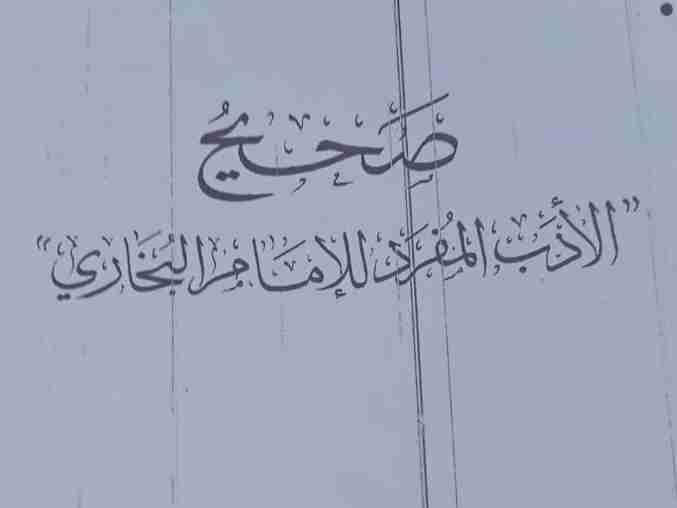 صَحِيحُ
"الأدَب المُفْرَد للإمَام البُخَاري"